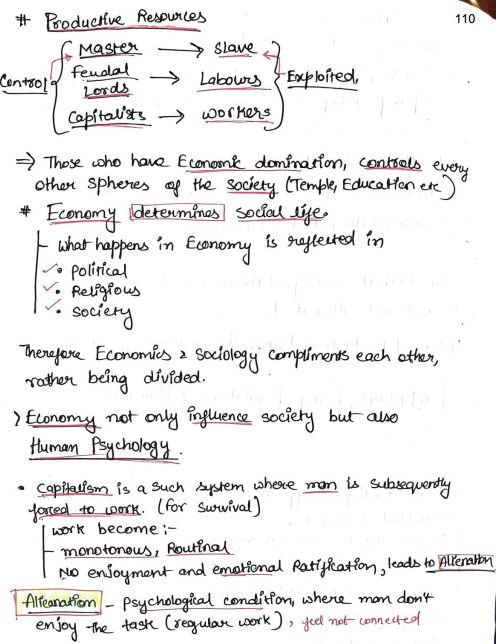 110
# Productive Resources
Master → Slave
Control Feudal Lords → Labours Exploited,
Capitalists → workers
⇒ Those who have Economic domination, controls every
other spheres of the society (Temple, Education etc)
* Economy determines social life.
- what happens in Economy is reflected in
✓• Political
✓• Religious
✓• Society
Therefore Economics & Sociology compliments each other,
rather being divided.
> Economy not only influence society but also
Human Psychology.
• Capitalism is a such system where man is subsequently
forced to work. (for survival)
work become :-
- monotonous, Routinal
No enjoyment and emotional Ratification, leads to Alienation
Alieanation - Psychological condition, where man don't
enjoy the task (regular work), feel not connected